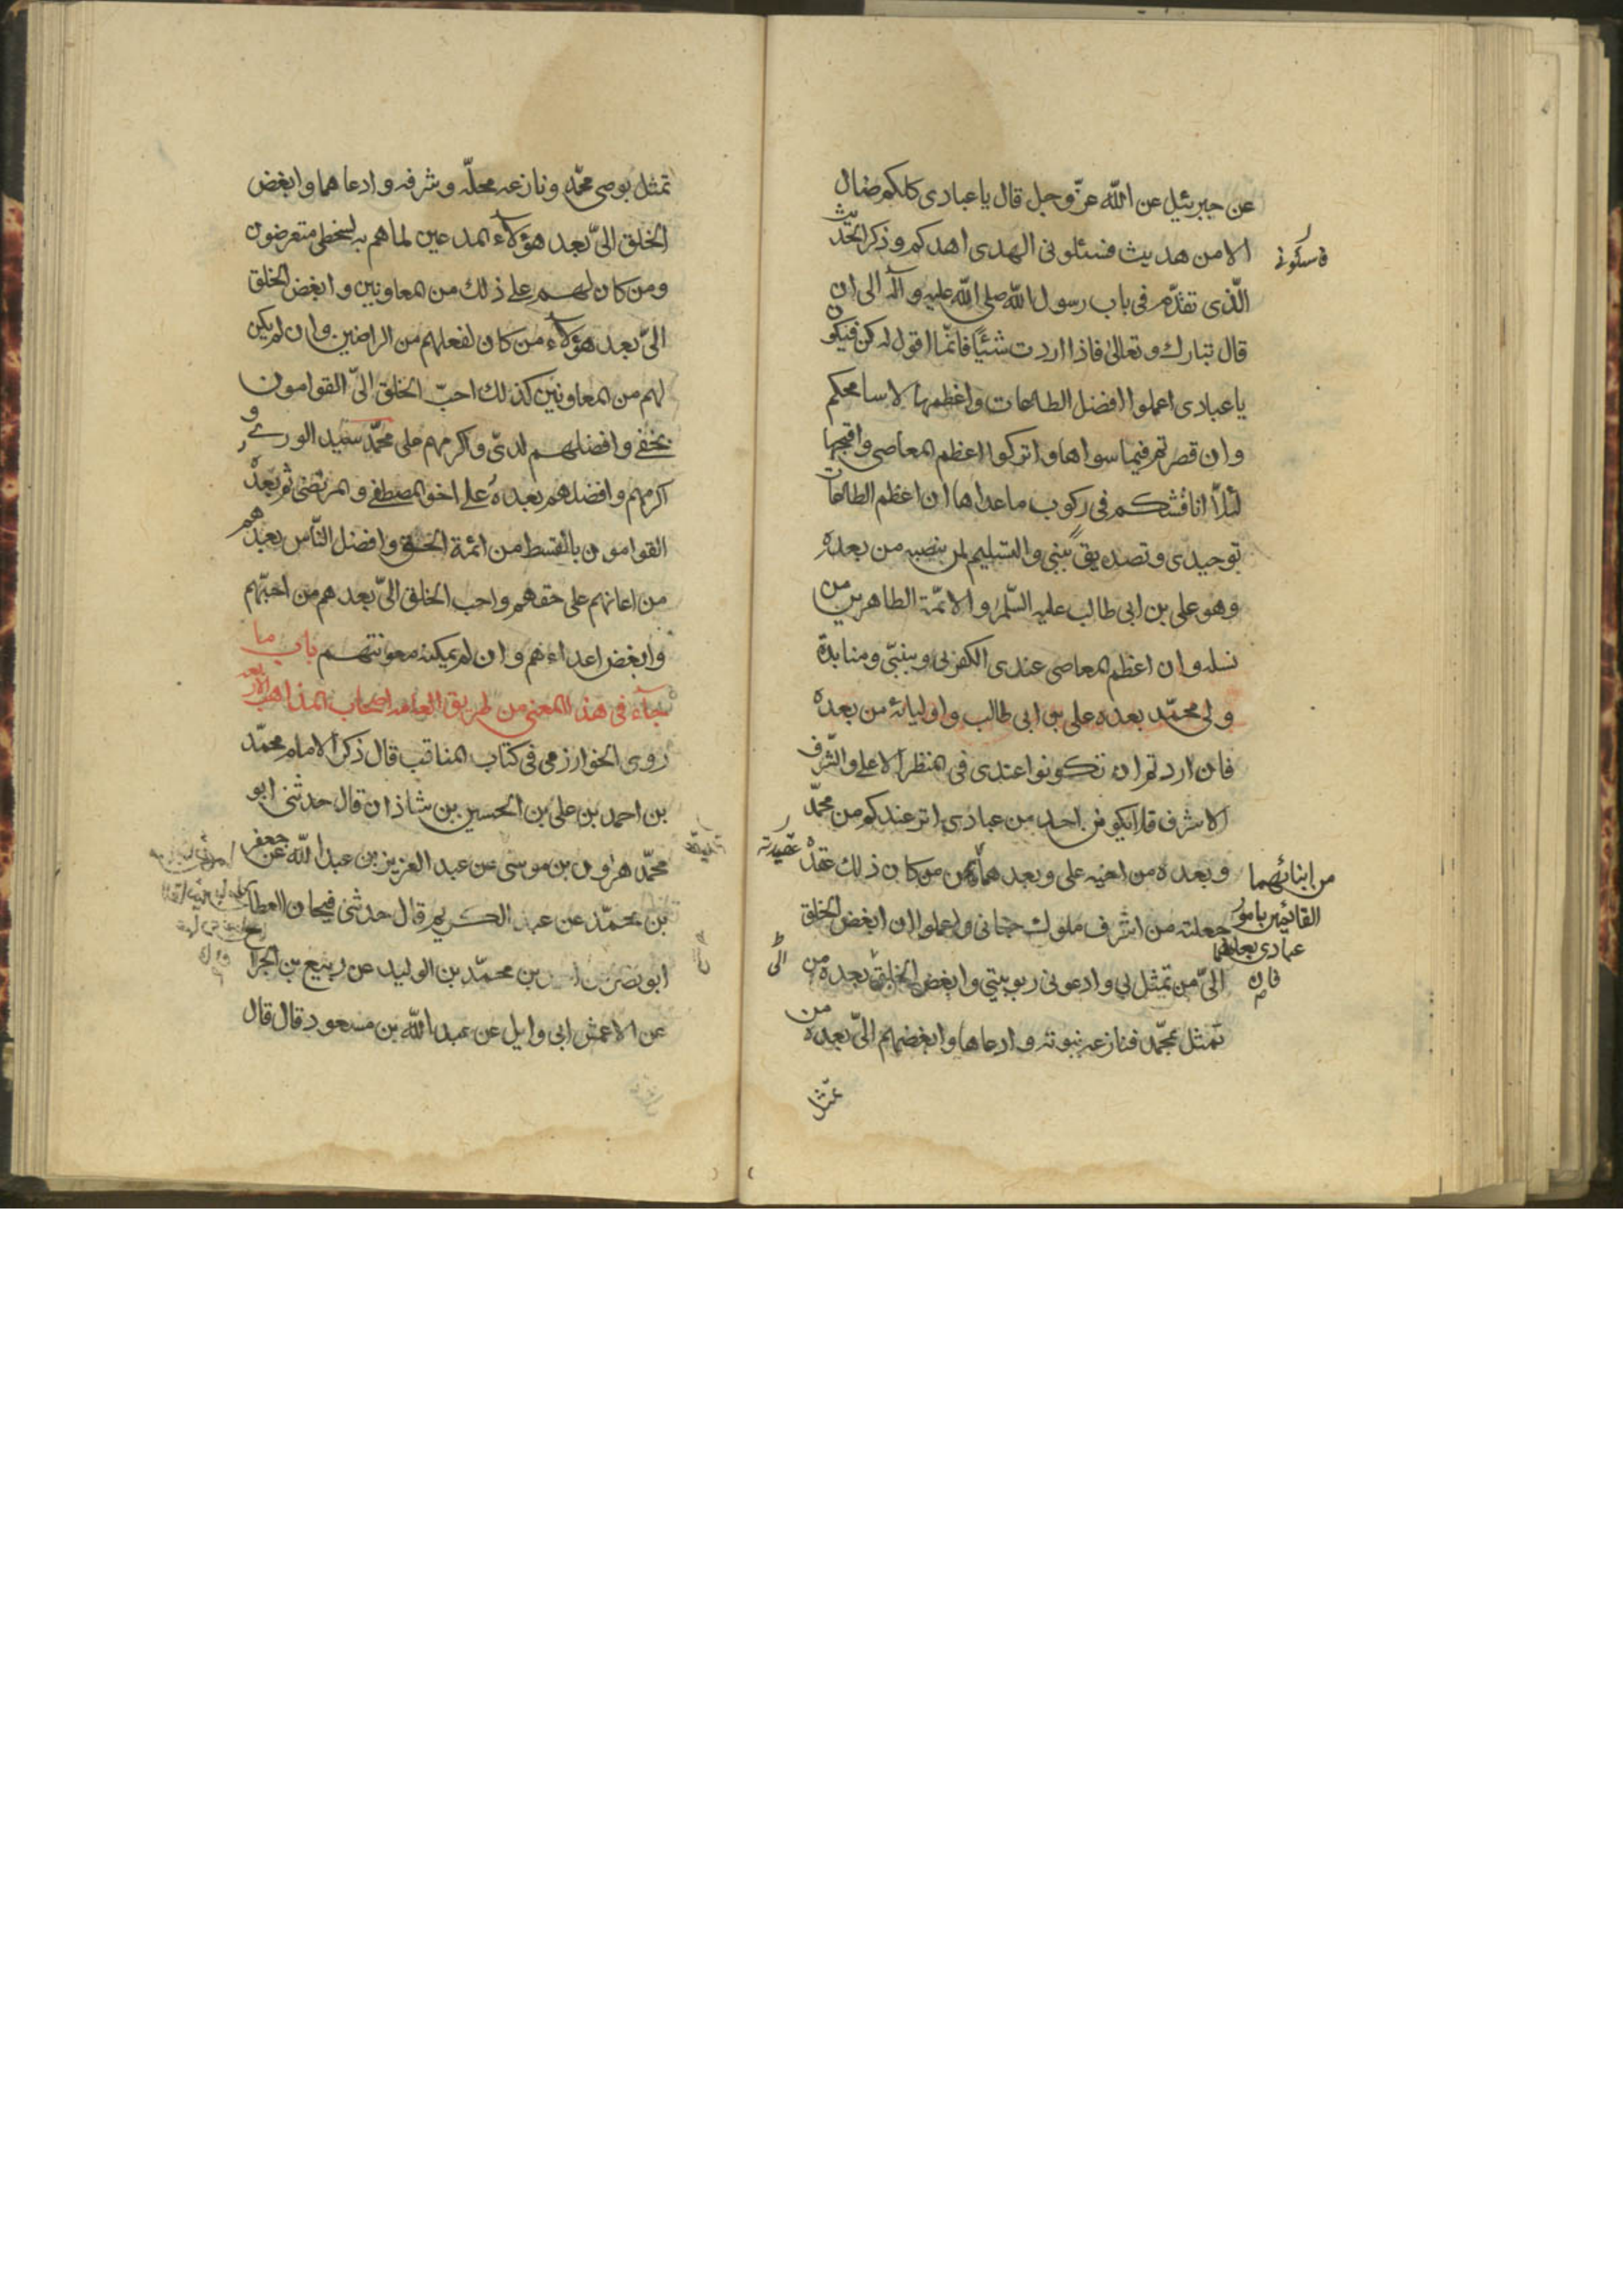 عن جبرئيل عن الله عزّ وجل قال يا عبادى كلكم ضال
الا من هديت فسئلونى الهدى اهدكم وذكر الحديث
فاسئلونى
الّذى تقدّم فى باب رسول الله صلى الله عليه وآله الى ان
قال تبارك وتعالى فاذا اردت شيئا فانّما اقول له كن فيكون
يا عبادى اعملوا افضل الطاعات واعظمها لاسامحكم
وان قصرتم فيما سواها واتركوا اعظم المعاصى واقبحها
لئلّا اناقشكم فى ركوب ما عداها ان اعظم الطاعات
توحيدى وتصديق نبيى والتسليم لمن ينصبه من بعده
وهو على بن ابى طالب عليه السّلم والائمّة الطاهرين من
نسله وان اعظم المعاصى عندى الكفر بى وبنبيّى ومنابذة
ولى محمّد بعده على بن ابى طالب واوليائه من بعده
فان اردتم ان تكونوا عندى فى المنظر الاعلى والشّرف
الاشرف فلا يكونن احد من عبادى اثر عندكم من محمّد
وبعده من اخيه على وبعدهما من كان ذلك عقده
من ابنائهما
القائمين بامور
عبادى بعدهما
عقيدته
جعلته من اشرف ملوك جنانى واعلموا ان ابغض الخلق
الىّ من تمثل بى وادعونى ربوبيتى وابغض الخلق بعده من
فان
الى
تمثل بمحمّد فنازعه نبوته وادعاها وابغضهم الىّ بعده من
تمثل
تمثل بوصى محمّد ونازعه محلّه وشرفه وادعاهما وابغض
الخلق الىّ بعد هؤلاء المدعين لما هم به لسخطى متعرضون
ومن كان لهم على ذلك من المعاونين وابغض الخلق
الىّ بعد هؤلاء من كان لفعلهم من الراضين وان لم يكن
لهم من المعاونين كذلك احبّ الخلق الىّ القوامون
بحقى وافضلهم لدىّ واكرمهم على محمّد سيد الورى و
اكرمهم وافضلهم بعده على اخو المصطفى والمرتضى ثم بعده
القوامون بالقسط من ائمة الحق وافضل النّاس بعدهم
من اعانهم على حقهم واحب الخلق الىّ بعدهم من احبّهم
وابغض اعداءهم وان لم يمكنه معونتهم باب ما
جاء فى هذا المعنى من طريق العامه اصحاب المذاهب الاربعه
روى الخوارزمى فى كتاب المناقب قال ذكر الامام محمّد
بن احمد بن على بن الحسين بن شاذان قال حدثنى ابو
محمّد هرون بن موسى عن عبد العزيز بن عبد الله عن جعفر
بن محمّد عن عبد الكريم قال حدثنى فيحان العطار
ابو نصر بن محمّد بن الوليد عن ربيع بن الجرا
عن الاعمش ابى وايل عن عبد الله بن مسعود قال قال